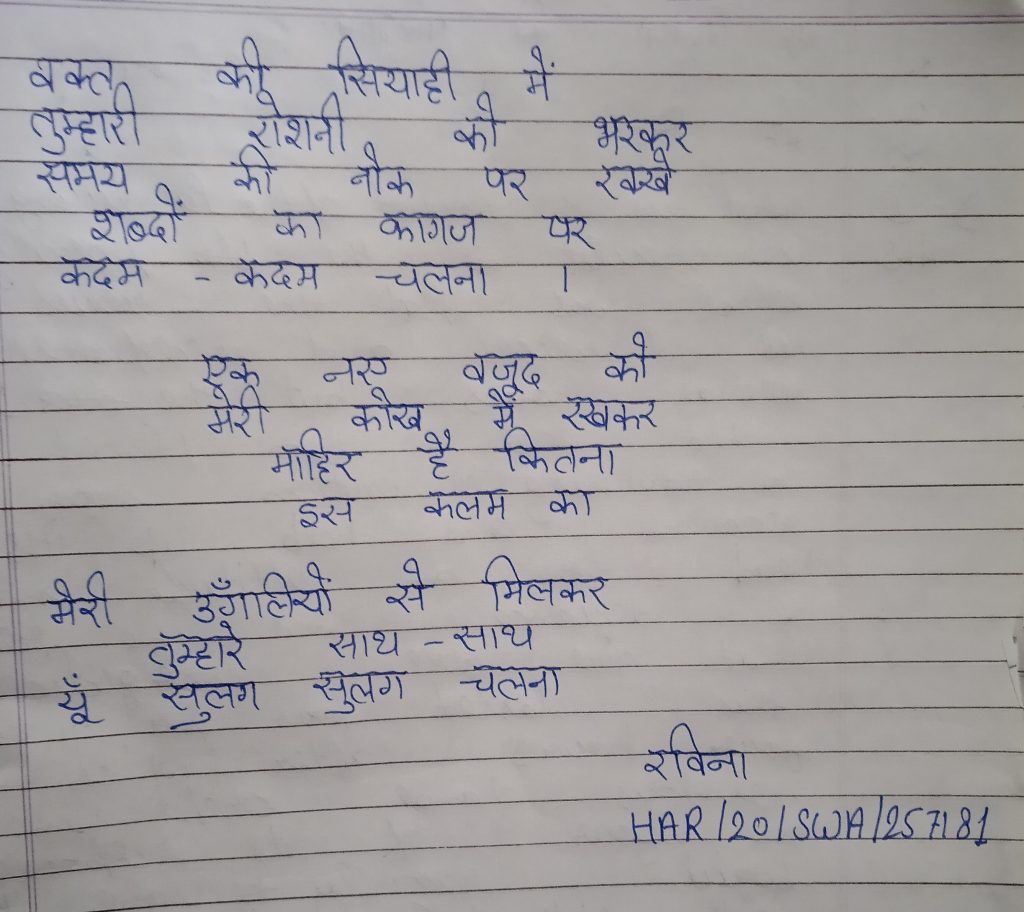 वक्त की सियाही में
तुम्हारी रोशनी को भरकर
समय की नोक पर रक्खे
शब्दों का कागज पर
कदम - कदम चलना ।
एक नए वजूद को
मेरी कोख में रखकर
माहिर है कितना
इस कलम का
मेरी उँगलियों से मिलकर
तुम्हारे साथ - साथ
यूँ सुलग सुलग चलना
रविना
HAR/20/SWA/257181